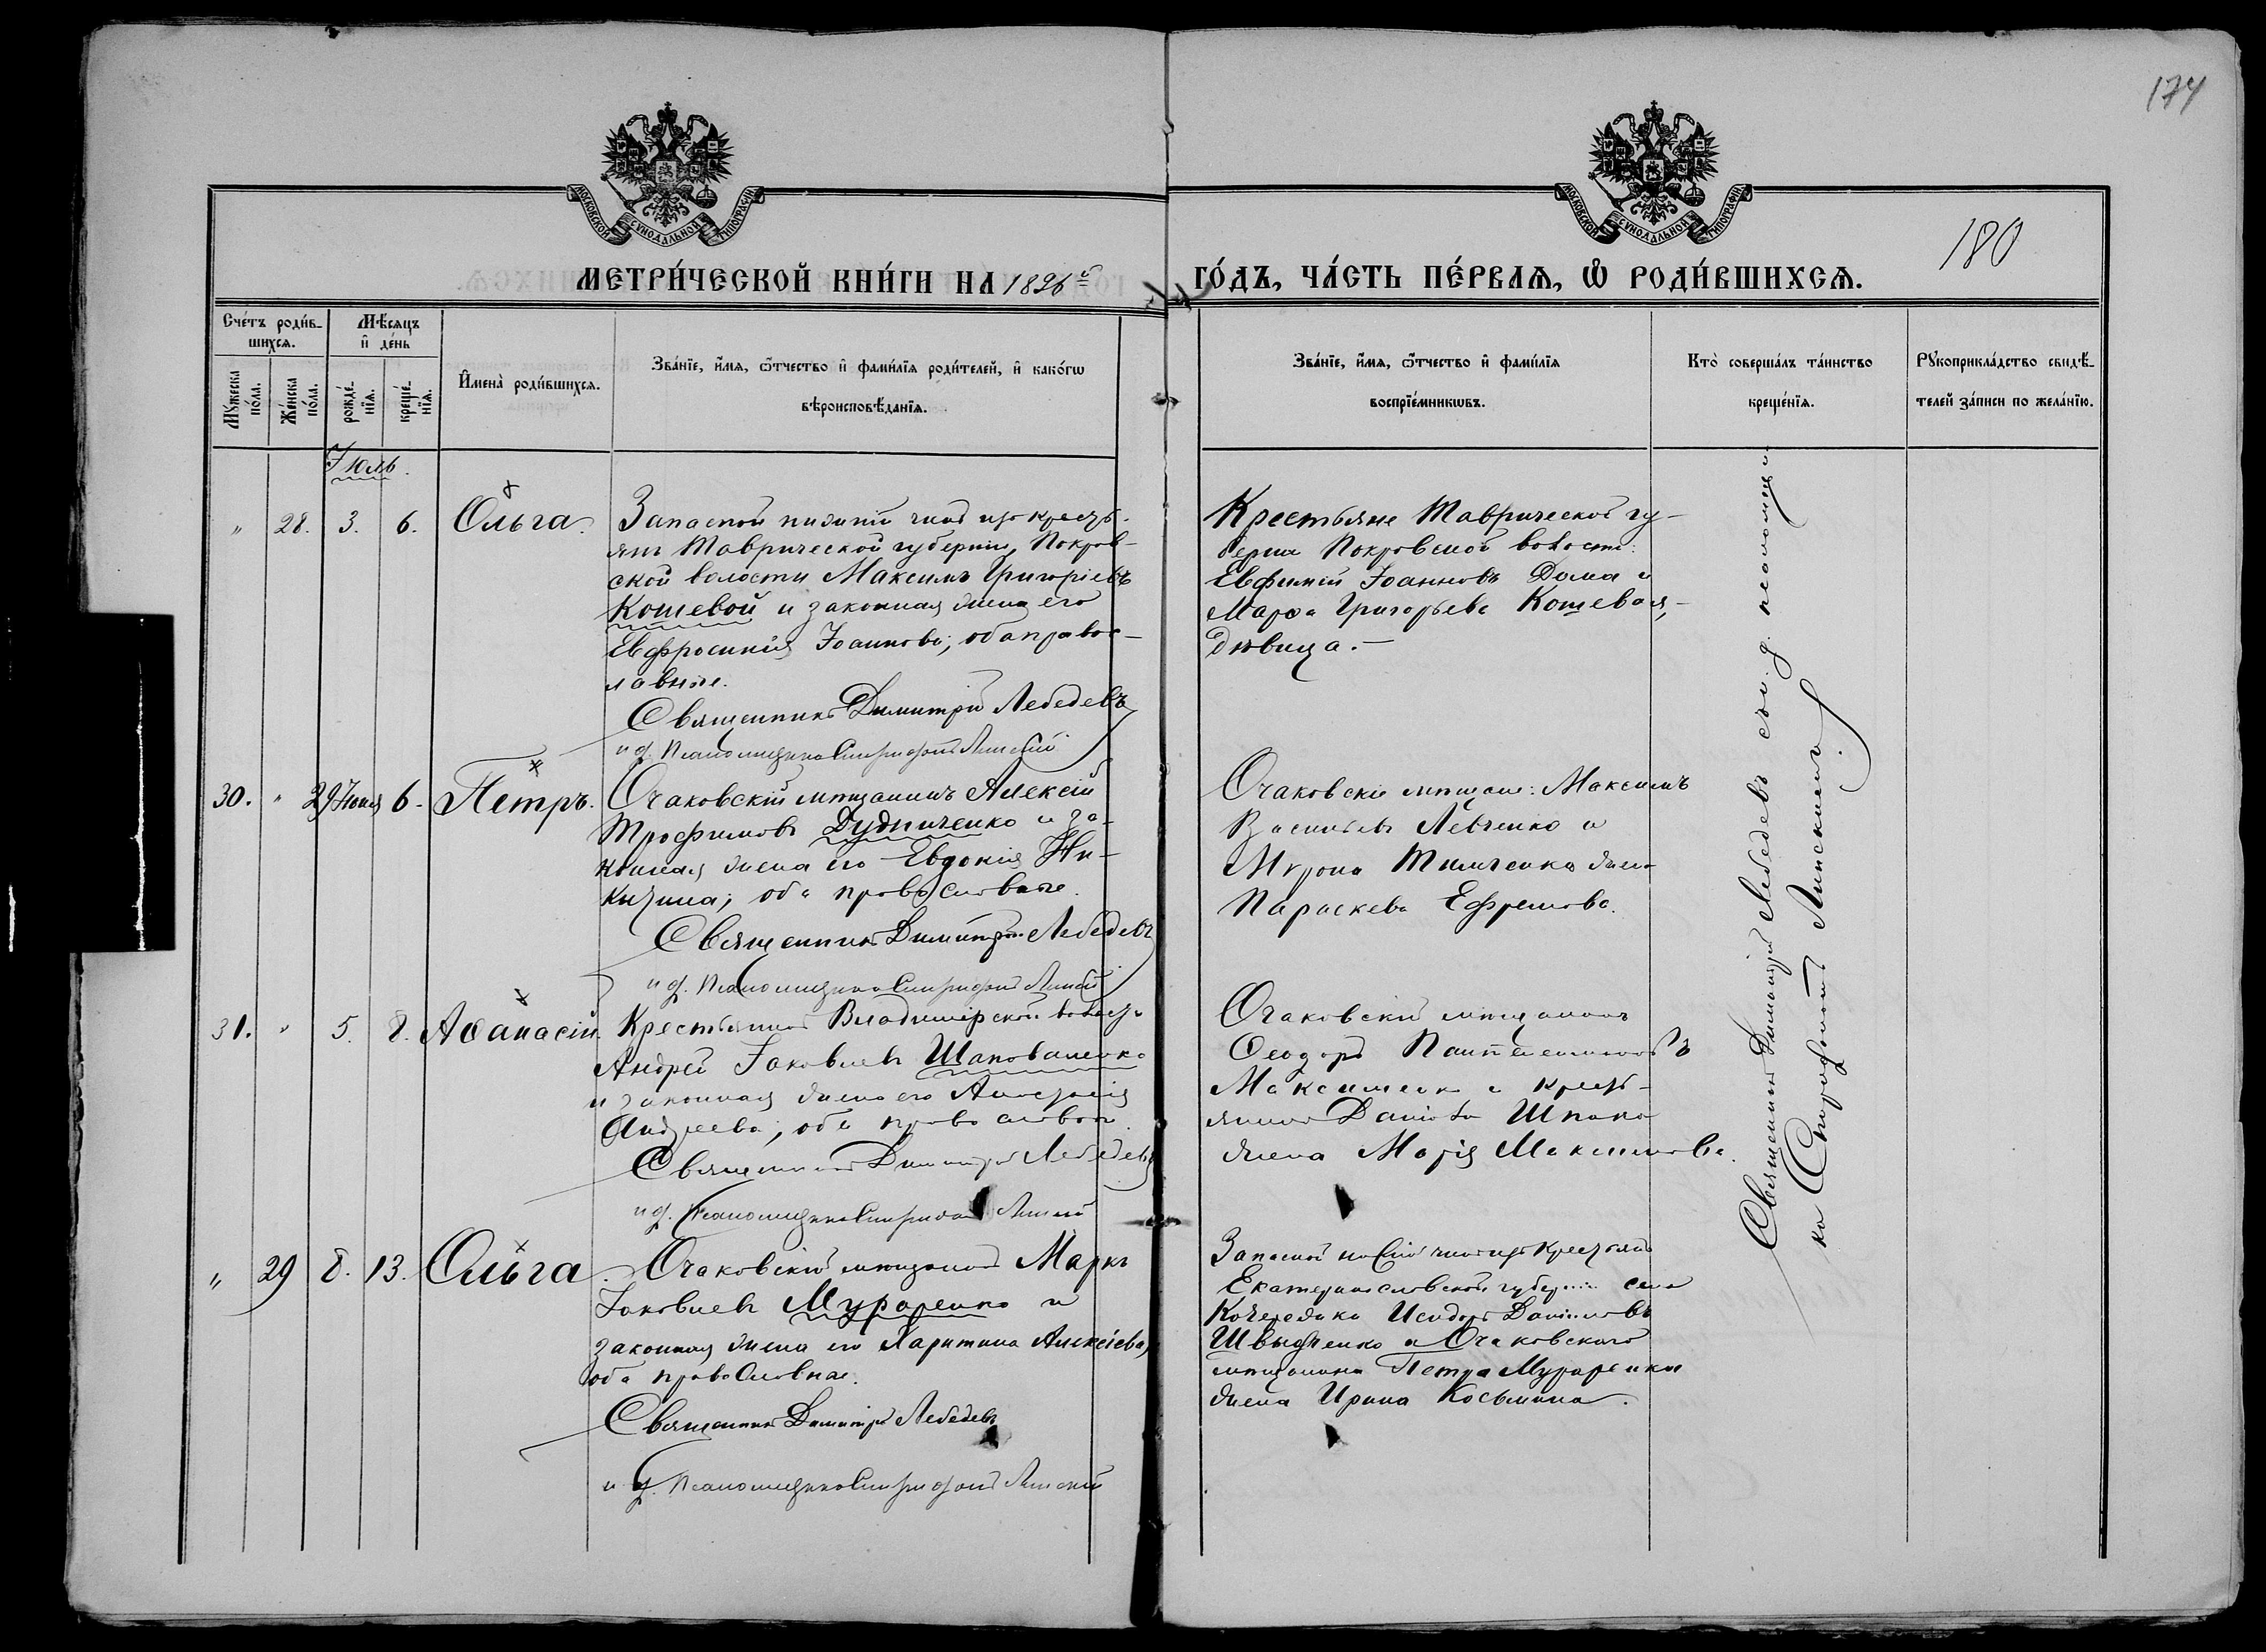 174
180
МОСКОВСКОЙ СУНОДАЛЬНОЙ ТИПОГРАФІИ
МОСКОВСКОЙ СУНОДАЛЬНОЙ ТИПОГРАФІИ
МЕТРИ́ЧЕСКОЙ КНИ́ГИ НА 1896й ГО́ДЪ, ЧА́СТЬ ПЕ́РВАѦ, Ѡ РОДИ́ВШИХСѦ.
Сче́тъ роди́в-
шихсѧ.
Мѣсѧцъ
и де́нь
Мꙋжеска по́ла.
Же́нска по́ла.
рожде́нїѧ.
креще́нїѧ.
Имена̀ роди́вшихсѧ.
Зва́нїе, и́мѧ, ѻ́тчество и фами́лїѧ роди́телей, и како́гѡ
вѣроисповѣ́данїѧ.
Зва́нїе, и́мѧ, ѻ́тчество и фами́лїѧ
воспрїе́мникѡвъ.
Кто̀ соверша́лъ та́инство
креще́нїѧ.
Рꙋкоприкла́дство свидѣ́-
телей за́писи по жела́нїю.
Іюль.
" 28. 3. 6. Ольга.
Запасной нижній чинъ изъ кресть-
янъ Таврической губерніи, Покров-
ской волости Максимъ Григоріевъ
Кошевой и законная жена его
Евфросинія Іоаннова; оба правос-
лавные.
Священникъ Димитрій Лебедевъ
и д. Псаломщика Спиридонъ Липскій
Крестьяне Таврической гу-
берніи Покровской волости:
Евфимій Іоанновъ Дома и
Марѳа Григорьева Кошевая,
дѣвица.
30. " 29 Іюня 6. Петръ.
Очаковскій мѣщанинъ Алексій
Трофимовъ Дудниченко и за-
конная жена его Евдокія Ни-
китина; оба православные.
Священникъ Димитрій Лебедевъ
и д. Псаломщика Спиридонъ Липскій
Очаковскіе мѣщане: Максимъ
Васильевъ Левченко и
Мирона Тимченка жена
Параскева Ефремова.
31. " 5. 8. Аѳанасій.
Крестьянинъ Владимірской волости
Андрей Іаковлевъ Шаповаленко
и законная жена его Анастасія
Андреева; оба православные.
Священникъ Димитрій Лебедевъ
и д. Псаломщика Спиридонъ Липскій
Очаковскій мѣщанинъ
Ѳеодоръ Пантелеимоновъ
Максименко и кресть-
янина Даніила Шпака
жена Марія Максимова.
" 29 8. 13. Ольга
Очаковскій мѣщанинъ Маркъ
Іаковлевъ Мураренко и
законная жена его Харитина Алексіева,
оба православные.
Священникъ Димитрій Лебедевъ
и д. Псаломщика Спиридонъ Липскій
Запасной нижній чинъ изъ крестьянъ
Екатеринославской губерніи села
Исидоръ Данииловъ
и Очаковскаго
мѣщанина Петра Мураренки
жена Ирина Косьмина.
Священникъ Димитрій Лебедевъ съ и. д. псаломщи-
ка Спиридономъ Липскимъ.